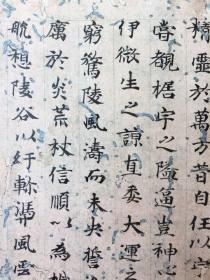 精靈於萬方昔自任以
嘗覩椐宇之隘遥豈神
伊微生之諒直委大運之
窮驚陵風濤而未央誓
厲於炎荒杖信順以為
眺想陵谷以紆軫馮風雲